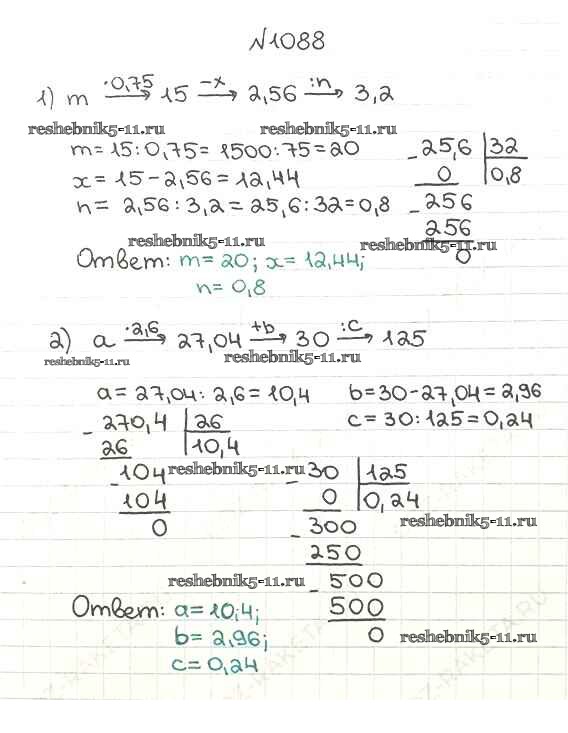 №1088
1) m ·0,75→ 15 −x→ 2,56 :n→ 3,2
reshebnik5-11.ru reshebnik5-11.ru
m=15:0,75=1500:75=20
x=15−2,56=12,44
n= 2,56:3,2=25,6:32=0,8
−25,6 32
0 0,8
−256
256
0
reshebnik5-11.ru reshebnik5-11.ru
Ответ: m=20; x=12,44;
n=0,8
2) a ·2,6→ 27,04 +b→ 30 :c→ 125
reshebnik5-11.ru reshebnik5-11.ru
a=27,04:2,6=10,4 b=30−27,04=2,96
c=30:125=0,24
−270,4 26
26 10,4
−104
104
0
reshebnik5-11.ru
−30 125
0 0,24
−300
250
−500
500
0
reshebnik5-11.ru
reshebnik5-11.ru
Ответ: a=10,4;
b=2,96;
c=0,24
reshebnik5-11.ru